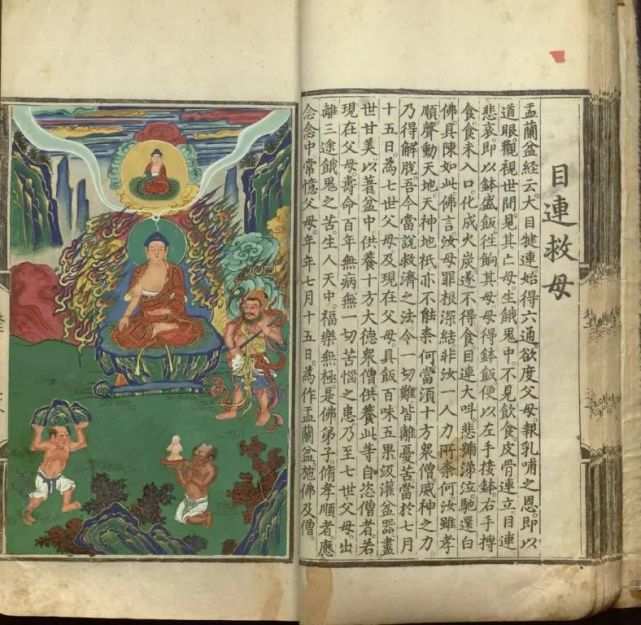 目連救母
盂蘭盆經云大目犍連始得六通欲度父母報乳哺之恩即以
道眼觀視世間見其亡母生餓鬼中不見飲食皮骨連立目連
悲哀即以鉢盛飯徃餉其母母得鉢飯便以左手接鉢右手摶
食食未入口化成火炭遂不得食目連大叫悲號涕泣馳還白
佛具陳如此佛言汝母罪根深結非汝一人力所柰何汝雖孝
順聲動天地天神地祇亦不能柰何當湏十方衆僧威神之力
乃得解脫吾今當說救濟之法令一切難皆離憂苦當於七月
十五日為七世父母及現在父母具飯百味五果汲灌盆器盡
世甘美以著盆中供養十方大德衆僧供養此等自恣僧者若
現在父母壽命百年無病無一切苦惱之患乃至七世父母出
離三途餓鬼之苦生人天中福樂無極是佛弟子脩孝順者應
念念中常憶父母年年七月十五日為作盂蘭盆施佛及僧